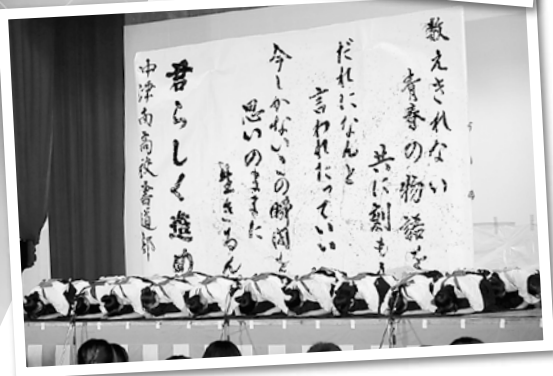 数えきれない
青春の物語を
共に刻もう
だれになんと
言われたっていい
今しかないこの瞬間を
思いのままに
生きるん
君らしく進め
中津南高校書道部